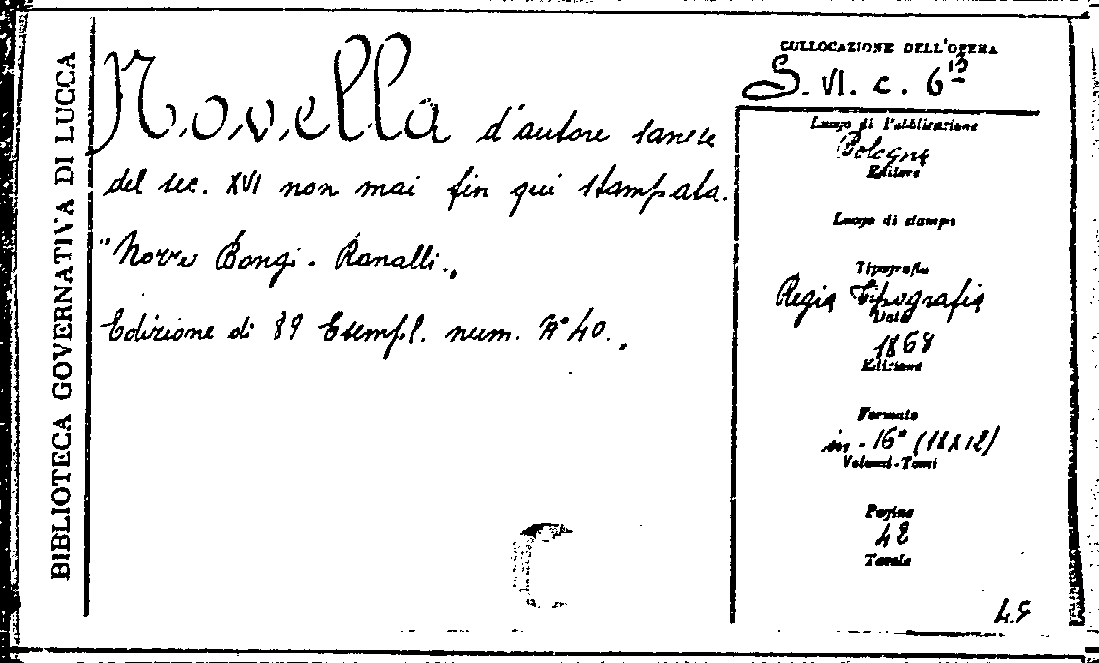 BIBLIOTECA GOVERNATIVA DI LUCCA
Novella d'autore sanese
del sec. XVI non mai fin qui stampata.
"Nozze Bongi - Ranalli".
Edizione di 89 Esempl. num. N° 40.
COLLOCAZIONE DELL'OPERA
S. VI. c. 6 13
Luogo di Pubblicazione
Bologna
Editore
Luogo di stampa
Tipografia
Regia Tipografia
Data
1868
Edizione
Formato
in - 16° (18X12)
Volumi-Tomi
Pagine
42
Tavole